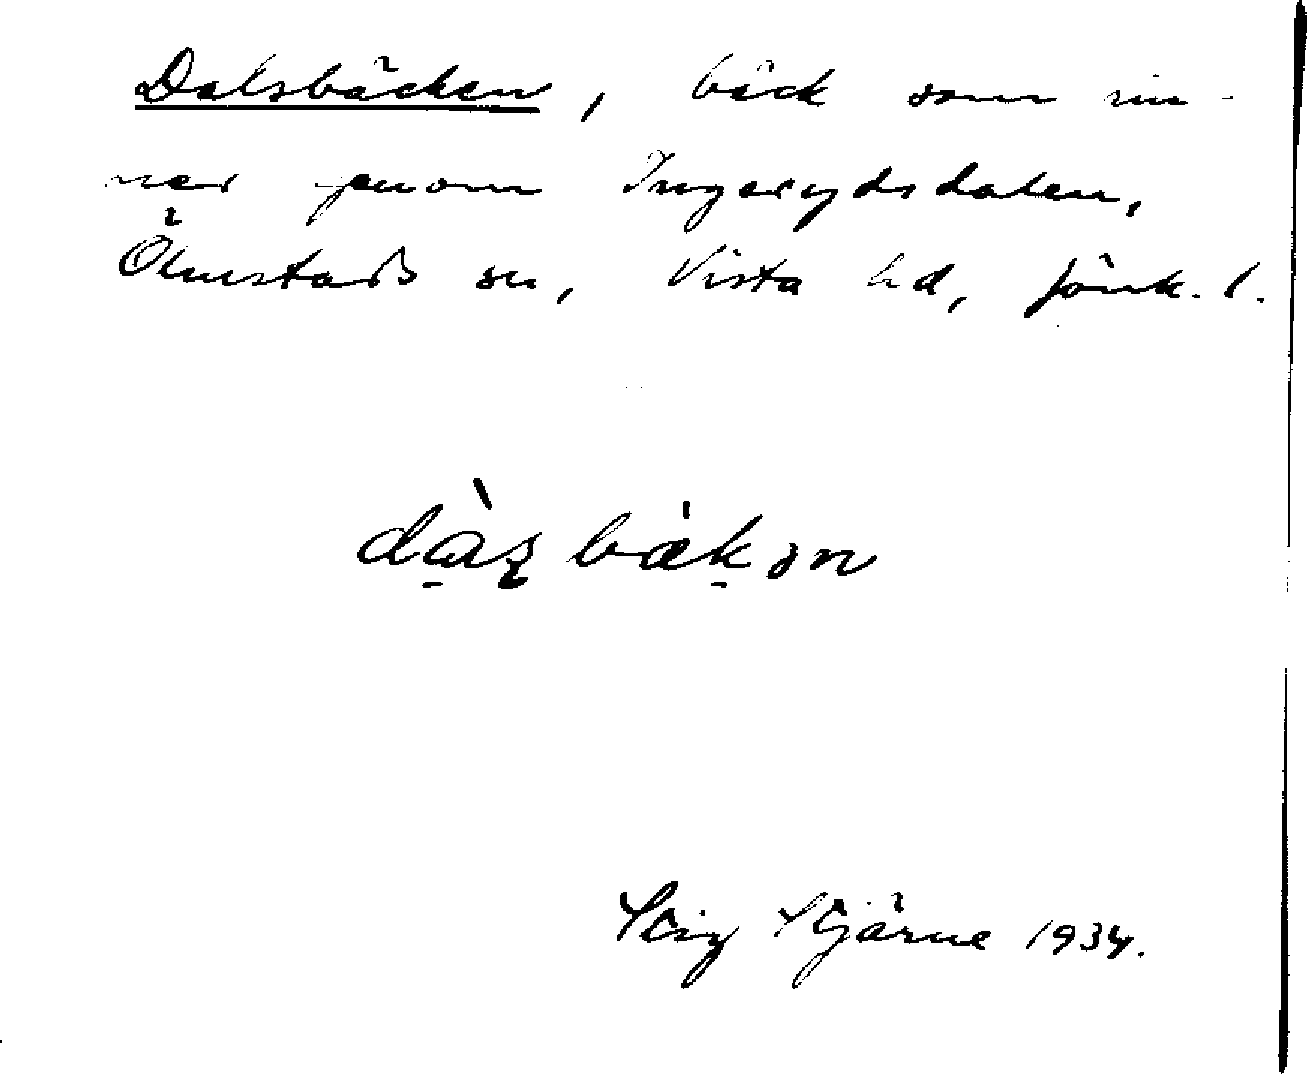 Dalsbäcken, bäck som rin-
ner genom Ingarydsdalen,
Ölmstads sn, Vista hd, Jönk. l.
Stig Stjärne 1934.